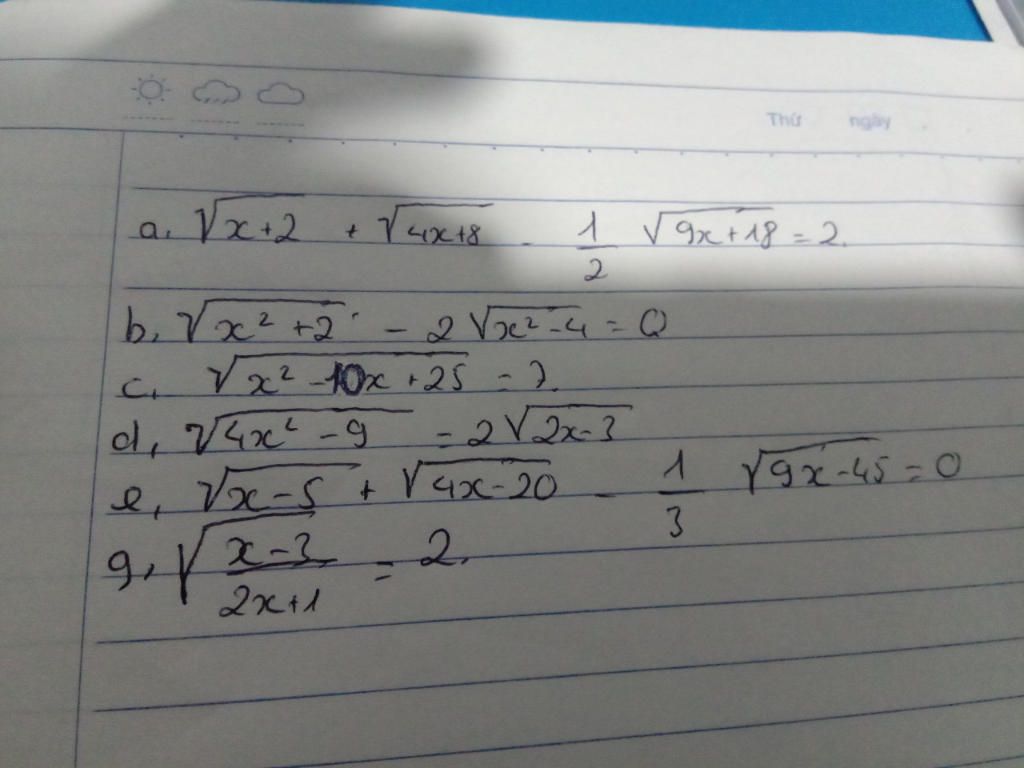 Thứ ngày
a, √(x+2) + √(4x+8) - 1/2 √(9x+18) = 2.
b, √(x² +2) - 2√(x²-4) = 0
c, √(x² -10x +25) =
d, √(4x² -9) = 2√(2x-3)
e, √(x-5) + √(4x-20) - 1/3 √(9x-45) = 0
g, √((x-3)/(2x+1)) = 2.